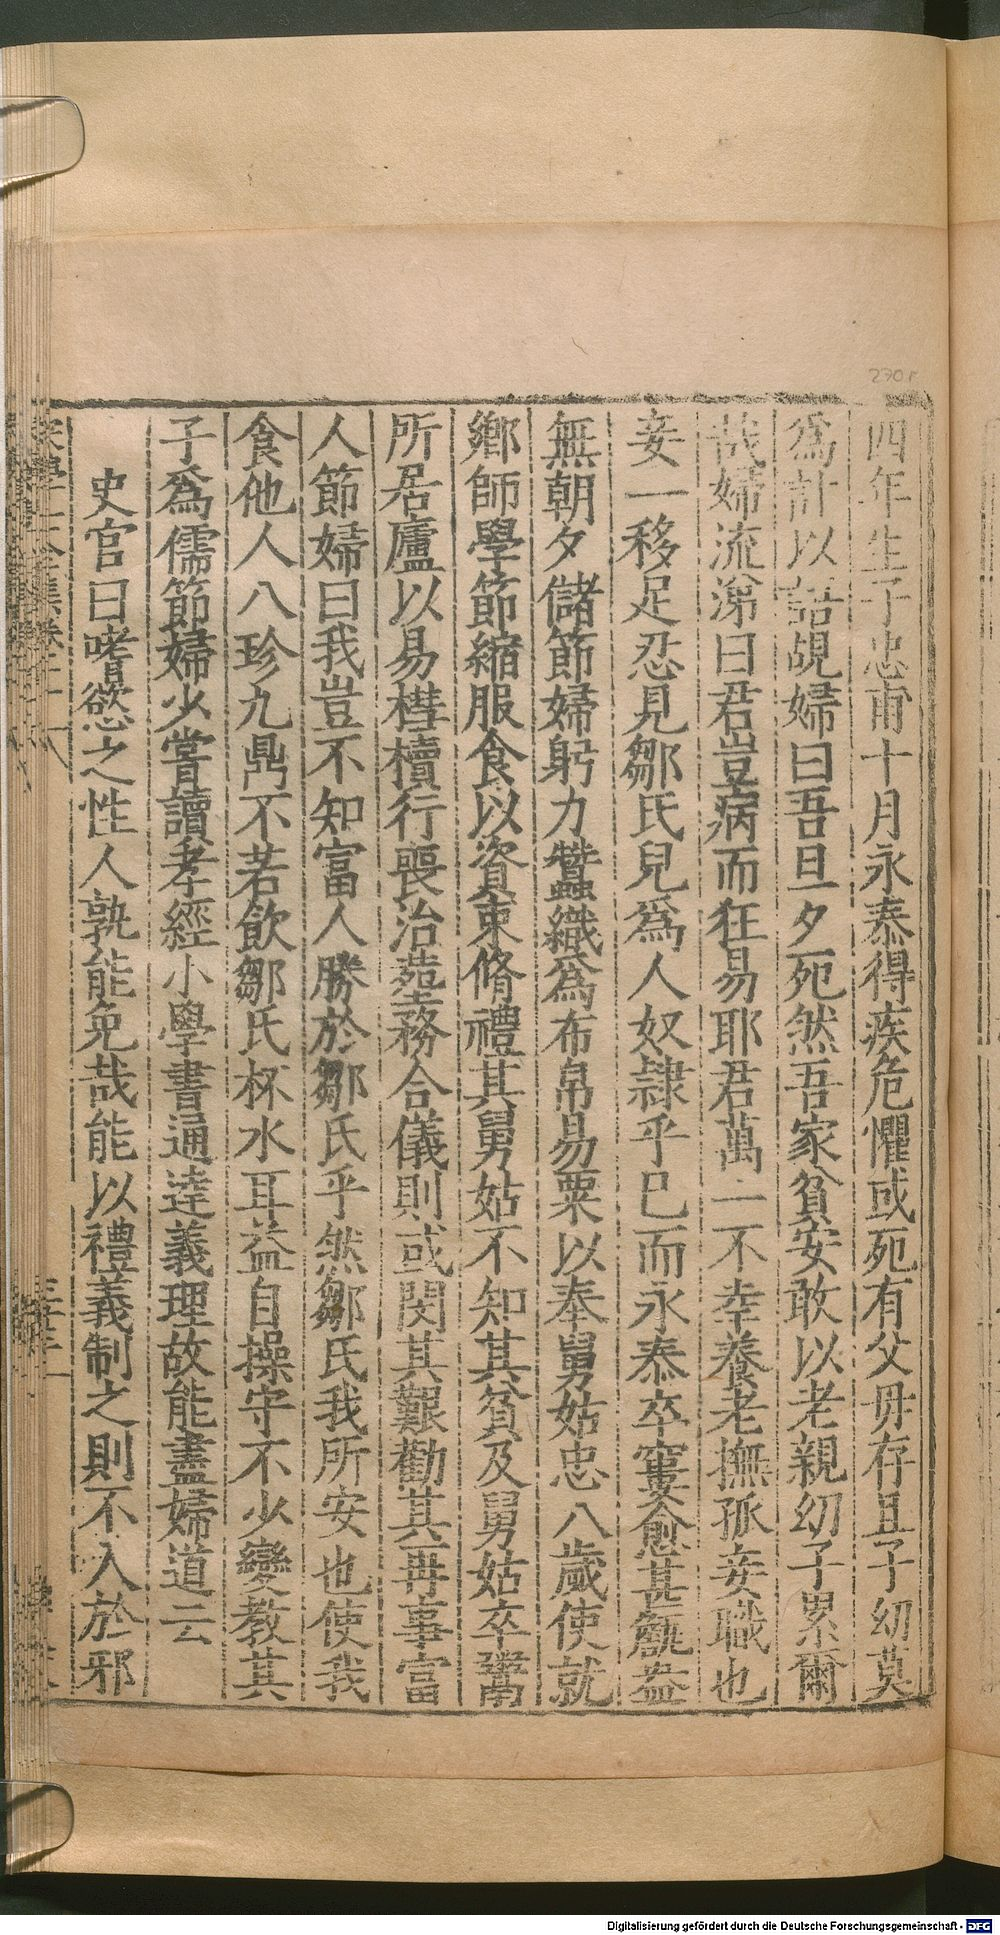 四年生子忠甫十月永泰得疾危懼或死有父母存且子幼莫
爲計以語覘婦曰吾旦夕死然吾家貧安敢以老親幼子累爾
哉婦流涕曰君豈病而狂易耶君萬一不幸養老撫孤妾職也
妾一移足忍見鄒氏兒爲人奴隷乎已而永泰卒窶愈甚甔盎
無朝夕儲節婦躬力蠶織爲布帛易粟以奉舅姑忠八歲使就
鄉師學節縮服食以資束脩禮其舅姑不知其貧及舅姑卒鬻
所居廬以易槥櫝行喪治塟務合儀則或閔其艱勸其再事富
人節婦曰我豈不知富人勝於鄒氏乎然鄒氏我所安也使我
食他人八珍九鼎不若飲鄒氏杯水耳益自操守不少變教其
子爲儒節婦少甞讀孝經小學書通逹義理故能盡婦道云
史官曰嗜慾之性人孰能免哉能以禮義制之則不入於邪
2701
Digitalisierung gefördert durch die Deutsche Forschungsgemeinschaft - DFG